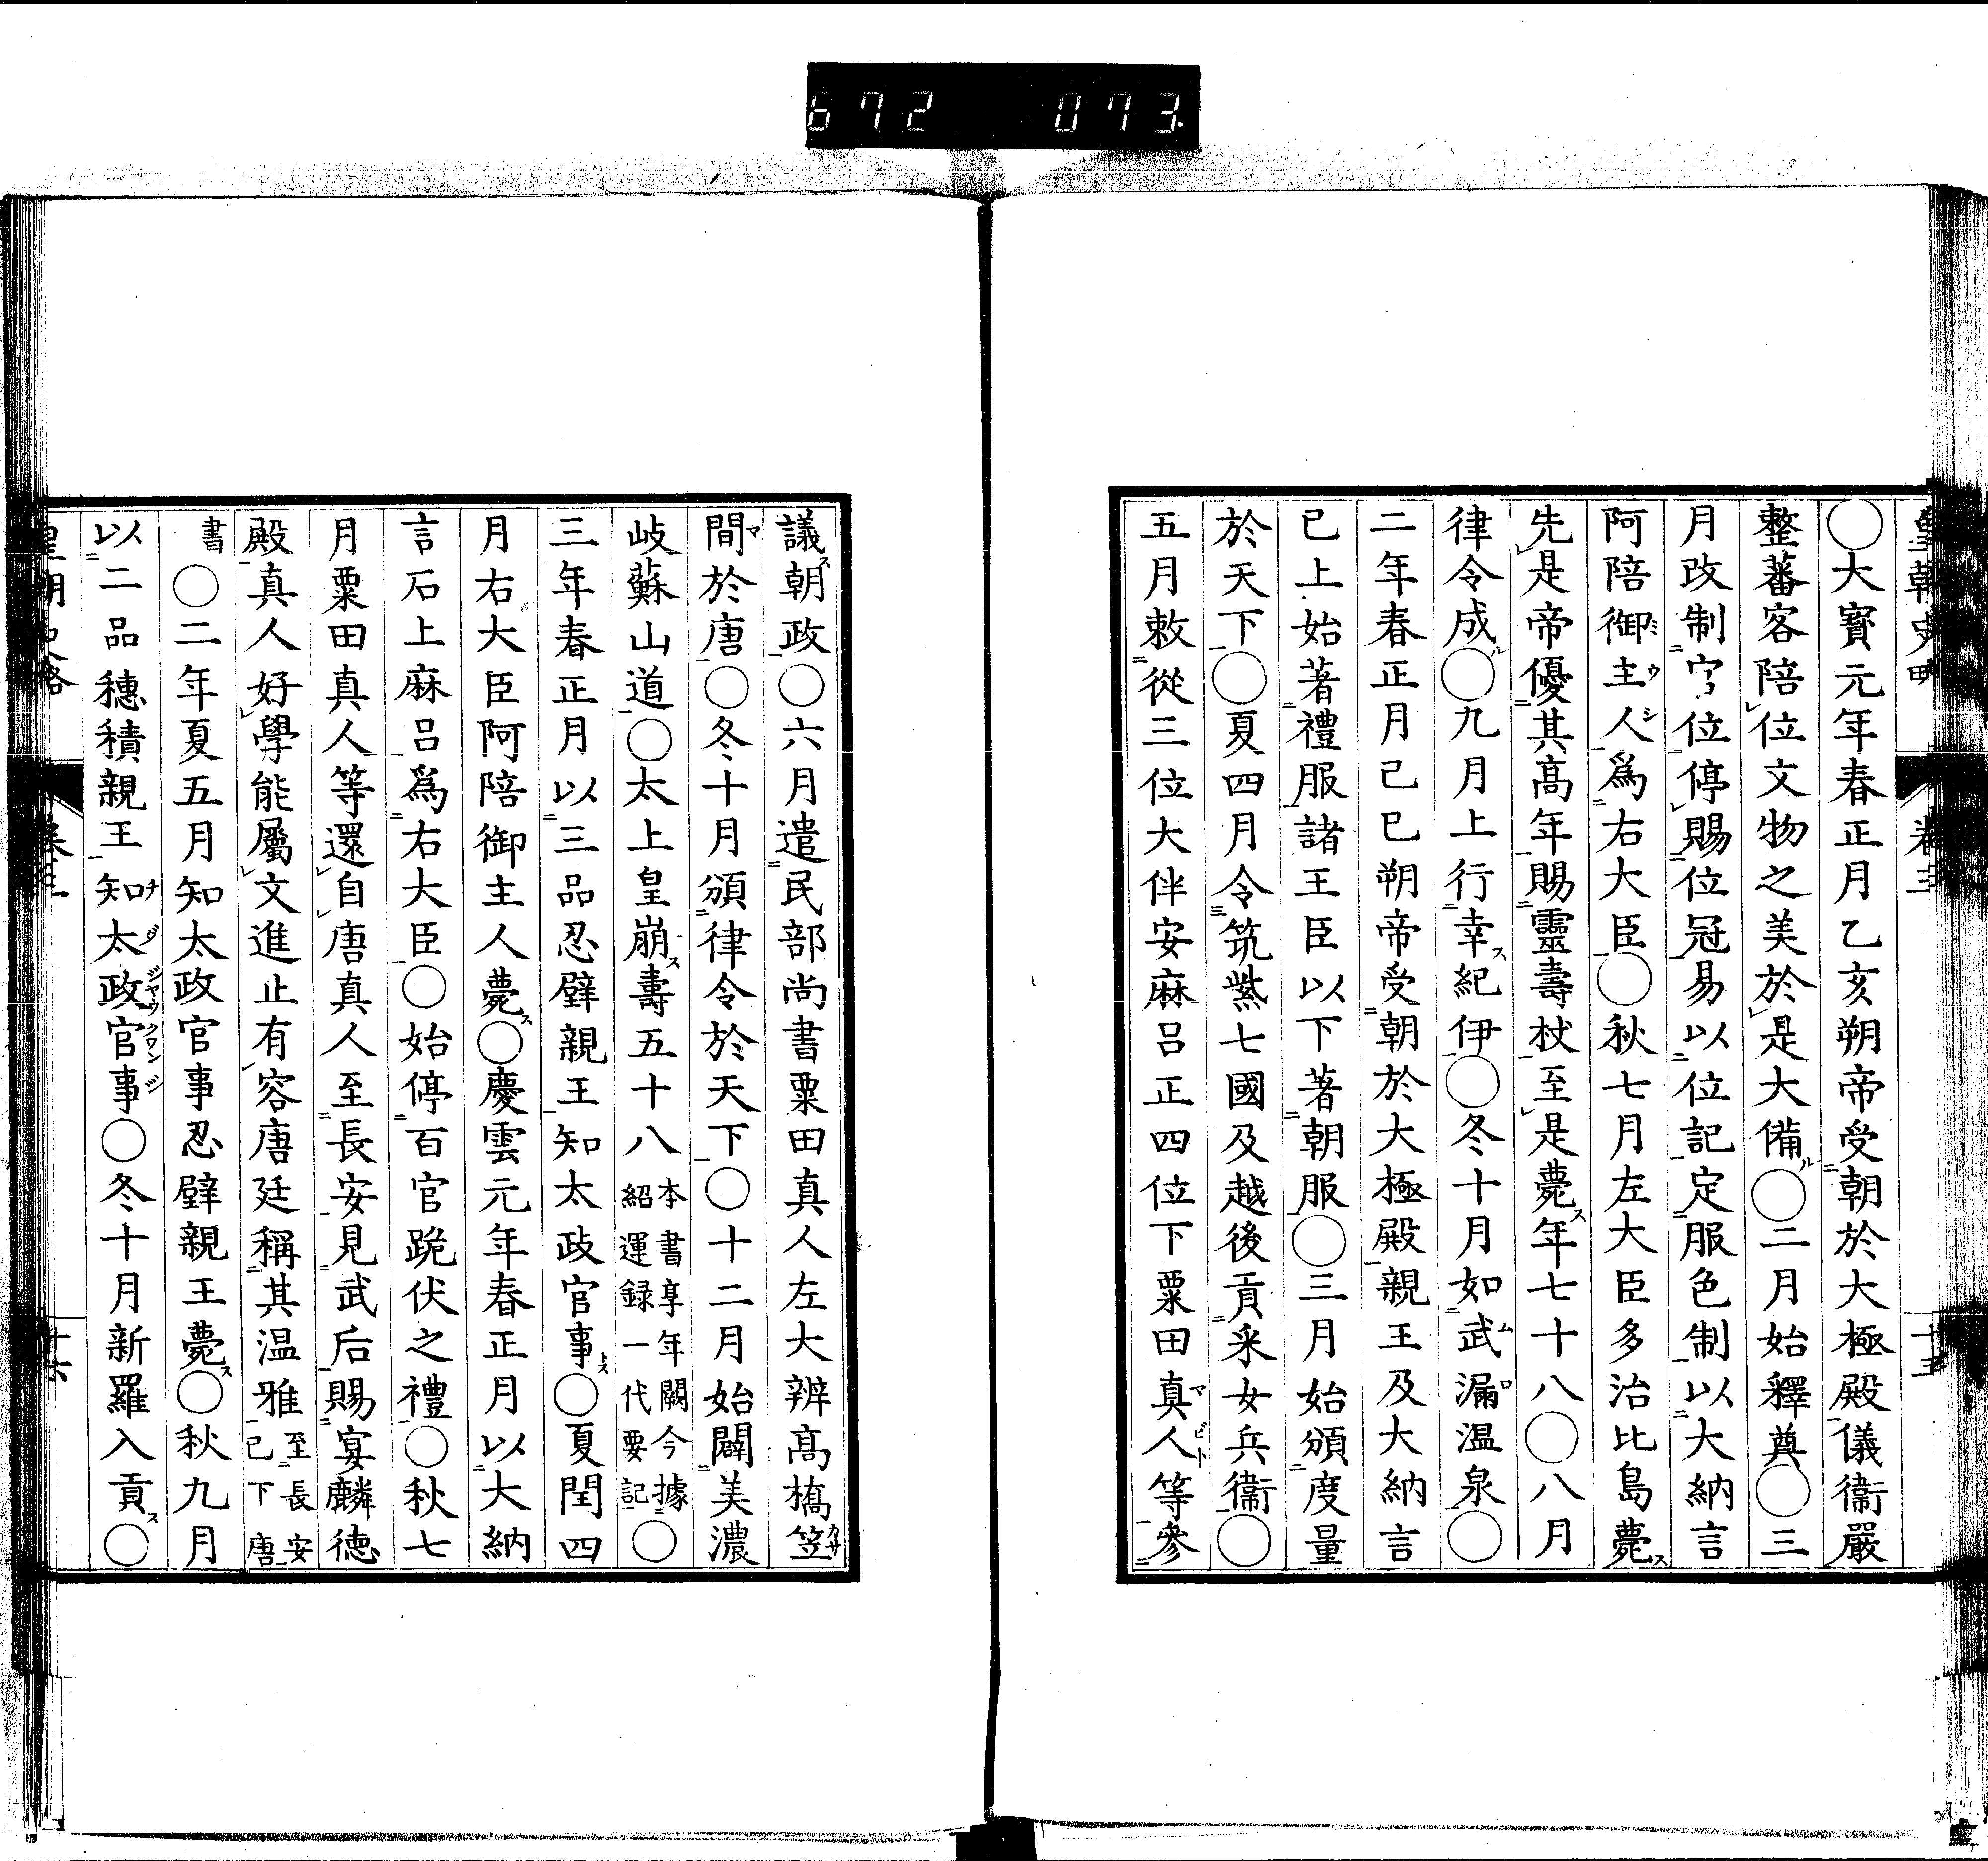 672 073.
皇朝史略 卷三 十五
〇大寳元年春正月乙亥朔帝受朝於大極殿儀衞嚴
整蕃客陪位文物之美於是大備〇二月始釋奠〇三
月改制官位停賜位冠易以位記定服色制以大納言
阿陪御主人爲右大臣〇秋七月左大臣多治比島薨
先是帝優其高年賜靈壽杖至是薨年七十八〇八月
律令成〇九月上行幸紀伊〇冬十月如武漏温泉〇
二年春正月己巳朔帝受朝於大極殿親王及大納言
已上始著禮服諸王臣以下著朝服〇三月始頒度量
於天下〇夏四月令筑紫七國及越後貢采女兵衞〇
五月敕從三位大伴安麻呂正四位下粟田真人等參
議朝政〇六月遣民部尚書粟田真人左大辨高橋笠
間於唐〇冬十月頒律令於天下〇十二月始闢美濃
岐蘇山道〇太上皇崩壽五十八本書享年闕今據紹運録一代要記〇
三年春正月以三品忍壁親王知太政官事〇夏閏四
月右大臣阿陪御主人薨〇慶雲元年春正月以大納
言石上麻呂爲右大臣〇始停百官跪伏之禮〇秋七
月粟田真人等還自唐真人至長安見武后賜宴麟德
殿真人好學能屬文進止有容唐廷稱其温雅至長安已下唐
書〇二年夏五月知太政官事忍壁親王薨〇秋九月
以二品穗積親王知太政官事〇冬十月新羅入貢〇
皇朝史略 卷三 十六